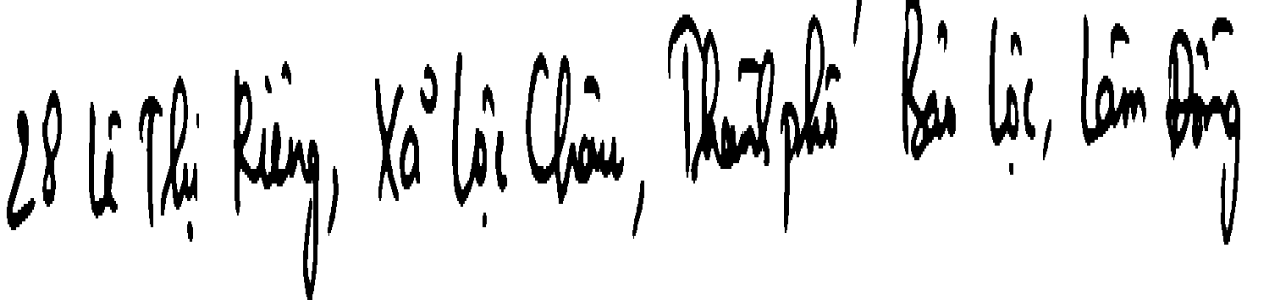 28 Lê Thị Riêng, Xã Lộc Châu, Thành phố Bảo Lộc, Lâm Đồng